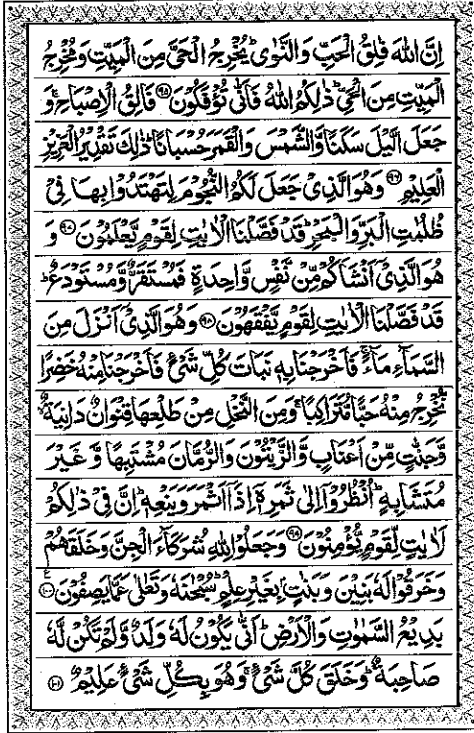 اِنَّ اللّٰهَ فٰلِقُ الْحَبِّ وَالنَّوٰى ؕ يُخْرِجُ الْحَىَّ مِنَ الْمَيِّتِ وَ مُخْرِجُ
الْمَيِّتِ مِنَ الْحَىِّ ؕ ذٰلِكُمُ اللّٰهُ فَاَنّٰى تُؤْفَكُوْنَ ۹۵ فَالِقُ الْاِصْبَاحِ ۚ وَ
جَعَلَ الَّيْلَ سَكَنًا وَّالشَّمْسَ وَالْقَمَرَ حُسْبَانًا ؕ ذٰلِكَ تَقْدِيْرُ الْعَزِيْزِ
الْعَلِيْمِ ۹۶ وَهُوَ الَّذِىْ جَعَلَ لَكُمُ النُّجُوْمَ لِتَهْتَدُوْا بِهَا فِىْ
ظُلُمٰتِ الْبَرِّ وَالْبَحْرِ ؕ قَدْ فَصَّلْنَا الْاٰيٰتِ لِقَوْمٍ يَّعْلَمُوْنَ ۹۷ وَ
هُوَ الَّذِىْۤ اَنْشَاَكُمْ مِّنْ نَّفْسٍ وَّاحِدَةٍ فَمُسْتَقَرٌّ وَّمُسْتَوْدَعٌ ؕ
قَدْ فَصَّلْنَا الْاٰيٰتِ لِقَوْمٍ يَّفْقَهُوْنَ ۹۸ وَهُوَ الَّذِىْۤ اَنْزَلَ مِنَ
السَّمَآءِ مَآءً ۚ فَاَخْرَجْنَا بِهٖ نَبَاتَ كُلِّ شَىْءٍ فَاَخْرَجْنَا مِنْهُ خَضِرًا
نُّخْرِجُ مِنْهُ حَبًّا مُّتَرَاكِبًا ۚ وَمِنَ النَّخْلِ مِنْ طَلْعِهَا قِنْوَانٌ دَانِيَةٌ
وَّجَنّٰتٍ مِّنْ اَعْنَابٍ وَّالزَّيْتُوْنَ وَالرُّمَّانَ مُشْتَبِهًا وَّغَيْرَ
مُتَشَابِهٍ ؕ اُنْظُرُوْۤا اِلٰى ثَمَرِهٖۤ اِذَاۤ اَثْمَرَ وَيَنْعِهٖ ؕ اِنَّ فِىْ ذٰلِكُمْ
لَاٰيٰتٍ لِّقَوْمٍ يُّؤْمِنُوْنَ ۹۹ وَجَعَلُوْا لِلّٰهِ شُرَكَآءَ الْجِنَّ وَخَلَقَهُمْ
وَخَرَقُوْا لَهٗ بَنِيْنَ وَبَنٰتٍۭ بِغَيْرِ عِلْمٍ ؕ سُبْحٰنَهٗ وَتَعٰلٰى عَمَّا يَصِفُوْنَ ۱۰۰
بَدِيْعُ السَّمٰوٰتِ وَالْاَرْضِ ؕ اَنّٰى يَكُوْنُ لَهٗ وَلَدٌ وَّلَمْ تَكُنْ لَّهٗ
صَاحِبَةٌ ؕ وَخَلَقَ كُلَّ شَىْءٍ ۚ وَهُوَ بِكُلِّ شَىْءٍ عَلِيْمٌ ۱۰۱